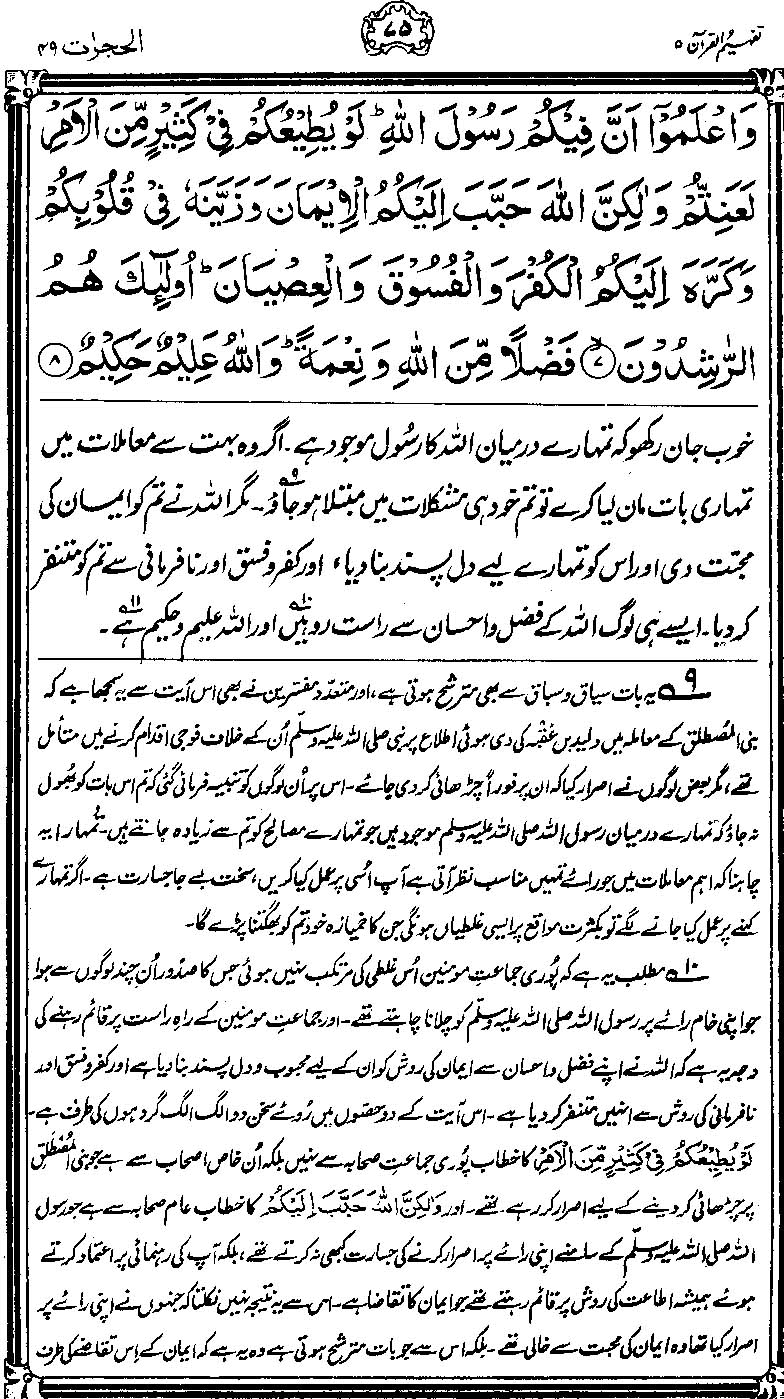 تفہیم القرآن ۵
۷۵
الحجرٰت ۴۹
وَاعْلَمُوْٓا اَنَّ فِيْكُمْ رَسُوْلَ اللّٰهِ ؕ لَوْ يُطِيْعُكُمْ فِيْ كَثِيْرٍ مِّنَ الْاَمْرِ
لَعَنِتُّمْ وَلٰكِنَّ اللّٰهَ حَبَّبَ اِلَيْكُمُ الْاِيْمَانَ وَزَيَّنَهٗ فِيْ قُلُوْبِكُمْ
وَكَرَّهَ اِلَيْكُمُ الْكُفْرَ وَالْفُسُوْقَ وَالْعِصْيَانَ ؕ اُولٰٓئِكَ هُمُ
الرّٰشِدُوْنَ ۷ فَضْلًا مِّنَ اللّٰهِ وَنِعْمَةً ؕ وَاللّٰهُ عَلِيْمٌ حَكِيْمٌ ۸
خوب جان رکھو کہ تمہارے درمیان اللہ کا رسُول موجود ہے۔ اگر وہ بہت سے معاملات میں
تمہاری بات مان لیا کرے تو تم خود ہی مشکلات میں مبتلا ہو جاؤ۹۔ مگر اللہ نے تم کو ایمان کی
محبّت دی اور اس کو تمہارے لیے دل پسند بنا دیا، اور کفر و فسق اور نافرمانی سے تم کو متنفر
کر دیا۔ ایسے ہی لوگ اللہ کے فضل و احسان سے راست رو ہیں۱۰ اور اللہ علیم و حکیم ہے۱۱۔
۹ یہ بات سیاق و سباق سے بھی مترشح ہوتی ہے، اور متعدّد مفسّرین نے بھی اس آیت سے یہ سمجھا ہے کہ
بنی المُصطلق کے معاملہ میں ولید بن عُقبہ کی دی ہوئی اطلاع پر نبی صلی اللہ علیہ وسلم اُن کے خلاف فوجی اقدام کرنے میں متأمل
تھے، مگر بعض لوگوں نے اصرار کیا کہ ان پر فوراً چڑھائی کر دی جائے۔ اس پر اُن لوگوں کو تنبیہ فرمائی گئی کہ تم اس بات کو بھُول
نہ جاؤ کہ تمہارے درمیان رسول اللہ صلی اللہ علیہ وسلم موجود ہیں جو تمہارے مصالح کو تم سے زیادہ جانتے ہیں۔ تمہارا یہ
چاہنا کہ اہم معاملات میں جو رائے تمہیں مناسب نظر آتی ہے آپ اُسی پر عمل کیا کریں، سخت بے جا جسارت ہے۔ اگر تمہارے
کہنے پر عمل کیا جانے لگے تو بکثرت مواقع پر ایسی غلطیاں ہونگی جن کا خمیازہ خود تم کو بھگتنا پڑے گا۔
۱۰ مطلب یہ ہے کہ پُوری جماعتِ مومنین اُس غلطی کی مرتکب نہیں ہوئی جس کا صدور اُن چند لوگوں سے ہوا
جو اپنی خام رائے پر رسول اللہ صلی اللہ علیہ وسلم کو چلانا چاہتے تھے۔ اور جماعتِ مومنین کے راہِ راست پر قائم رہنے کی
وجہ یہ ہے کہ اللہ نے اپنے فضل و احسان سے ایمان کی روش کو ان کے لیے محبوب و دل پسند بنا دیا ہے اور کفر و فسق اور
نافرمانی کی روش سے انہیں متنفر کر دیا ہے۔ اس آیت کے دو حصّوں میں رُوئے سخن دو الگ الگ گروہوں کی طرف ہے۔
لَوْ يُطِيْعُكُمْ فِيْ كَثِيْرٍ مِّنَ الْاَمْرِ کا خطاب پُوری جماعتِ صحابہ سے نہیں بلکہ اُن خاص اصحاب سے ہے جو بنی المُصْطَلِق
پر چڑھائی کر دینے کے لیے اصرار کر رہے تھے۔ اور وَلٰكِنَّ اللّٰهَ حَبَّبَ اِلَيْكُمُ کا خطاب عام صحابہ سے ہے جو رسول
اللہ صلی اللہ علیہ وسلم کے سامنے اپنی رائے پر اصرار کرنے کی جسارت کبھی نہ کرتے تھے، بلکہ آپ کی رہنمائی پر اعتماد کرتے
ہوئے ہمیشہ اطاعت کی روش پر قائم رہتے تھے جو ایمان کا تقاضا ہے۔ اس سے یہ نتیجہ نہیں نکلتا کہ جنہوں نے اپنی رائے پر
اصرار کیا تھا وہ ایمان کی محبت سے خالی تھے۔ بلکہ اس سے جو بات مترشح ہوتی ہے وہ یہ ہے کہ ایمان کے اِس تقاضے کی طرف